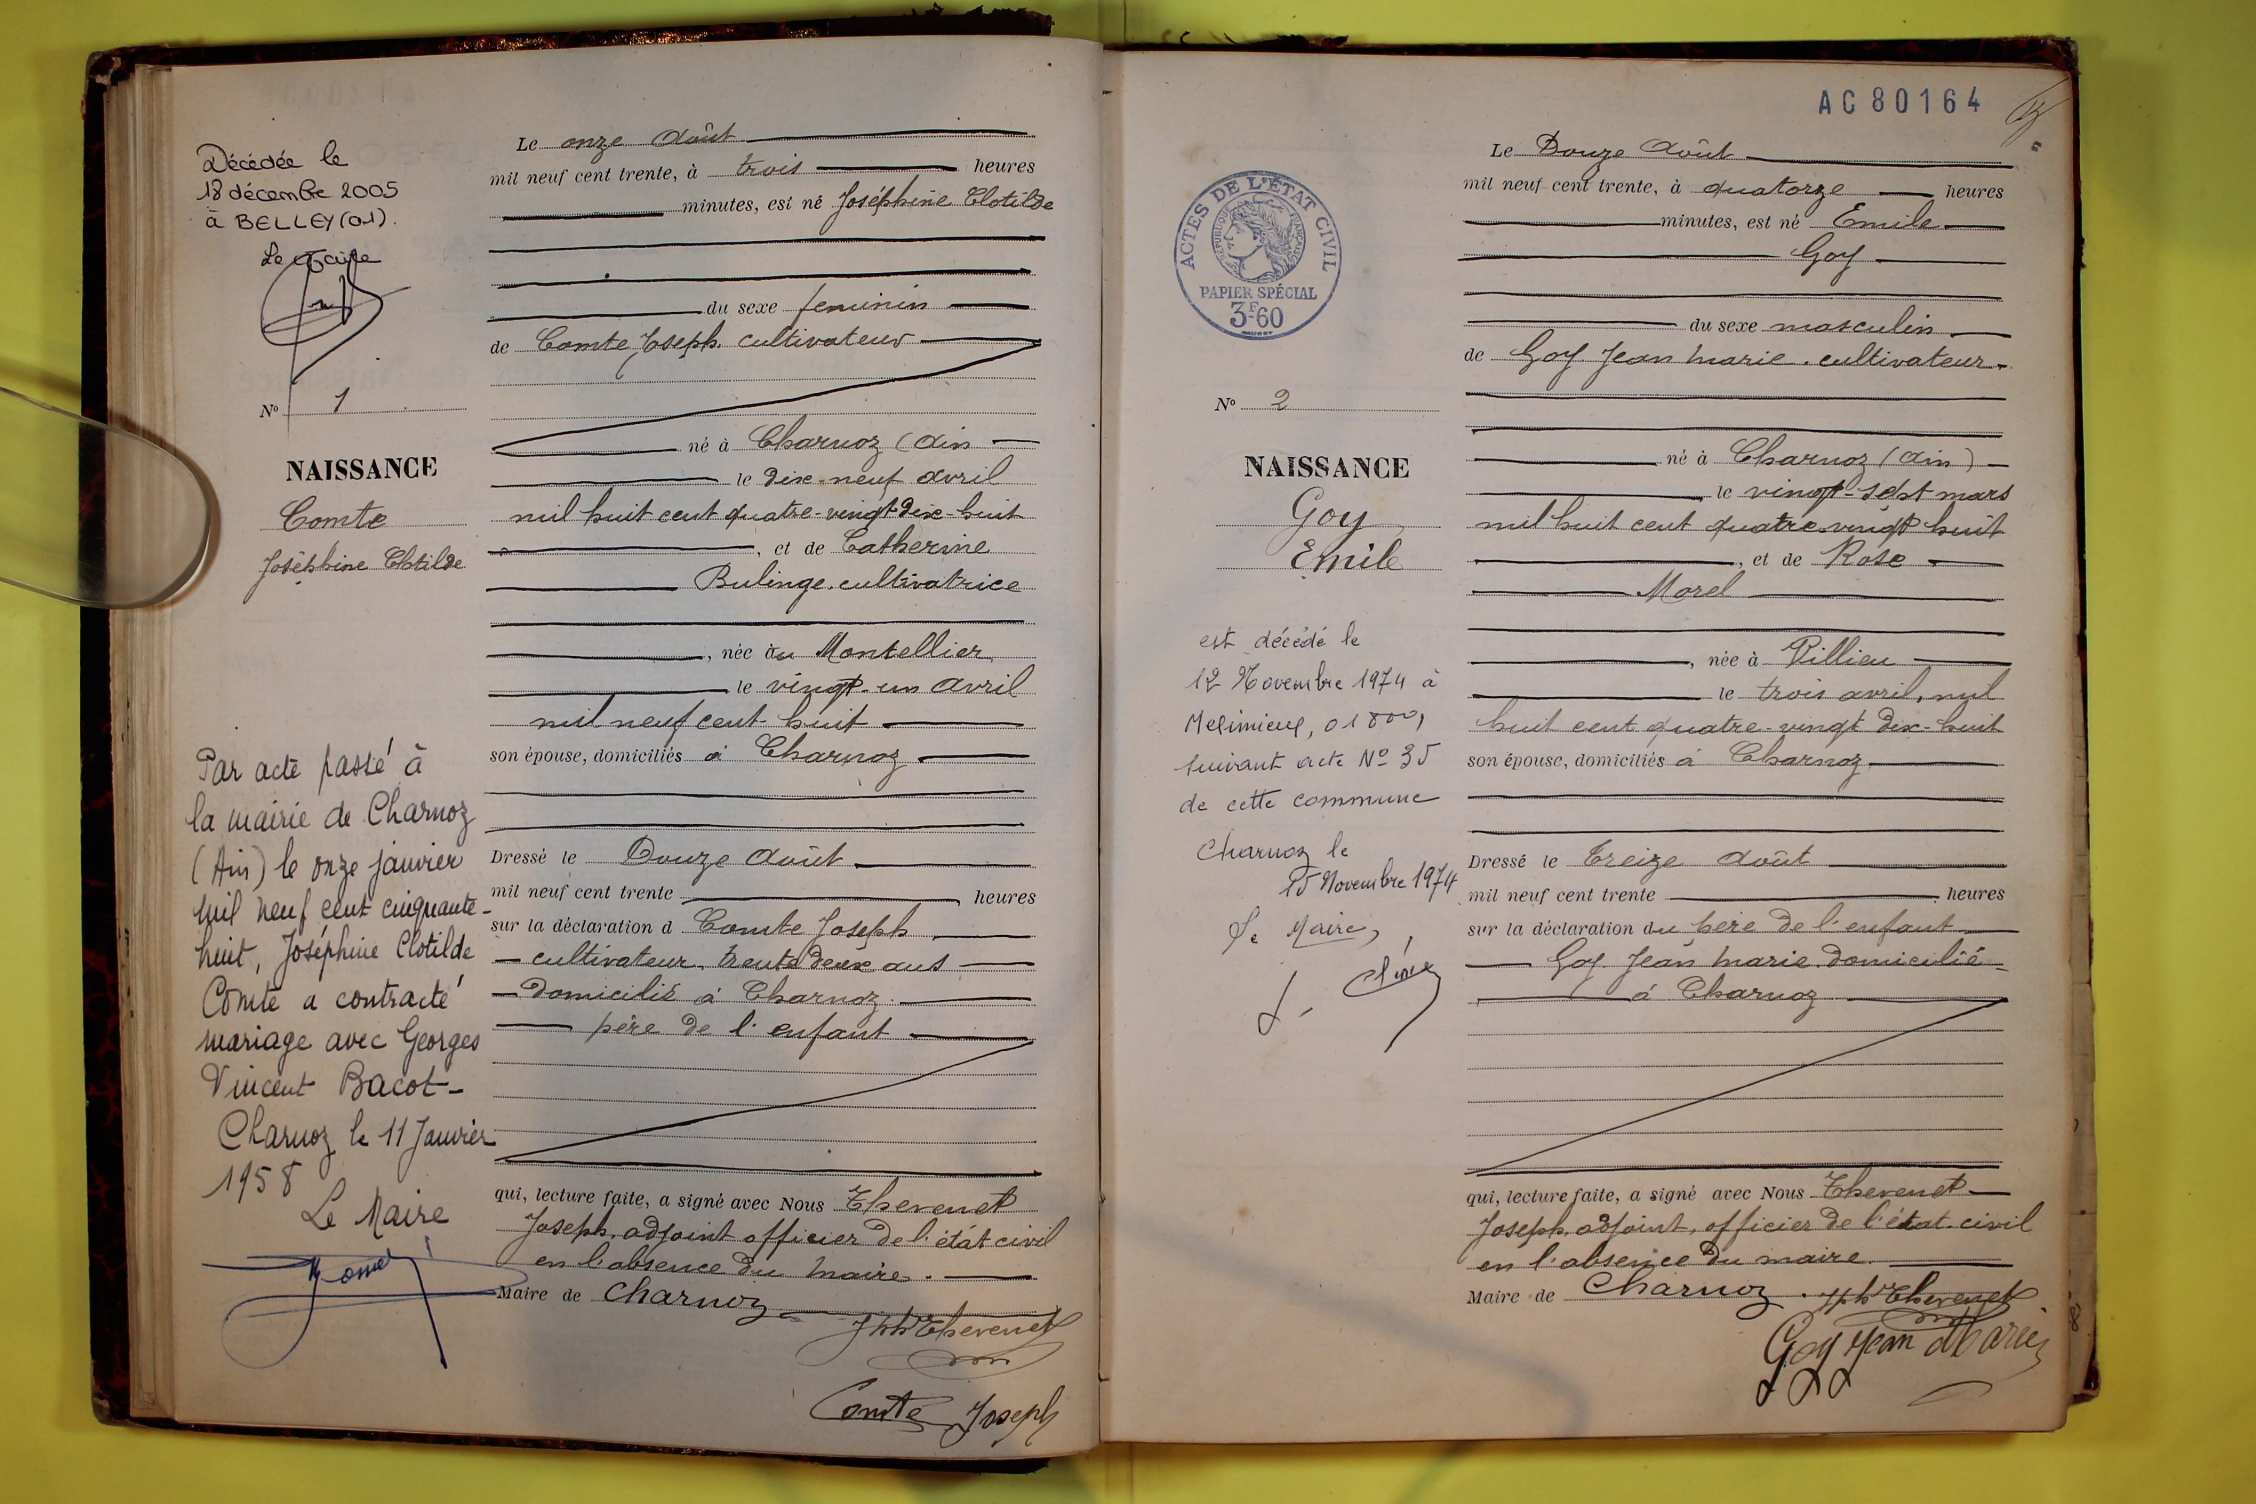 Décédée le
18 décembre 2005
à BELLEY (01).
Le Maire
N° 1
NAISSANCE
Comte
Joséphine Clotilde
Par acte passé à
la mairie de Charnoz
(Ain) le onze janvier
mil neuf cent cinquante-
huit, Joséphine Clotilde
Comte a contracté
mariage avec Georges
Vincent Bacot-
Charnoz le 11 Janvier
1958
Le Maire
Le onze Août
mil neuf cent trente, à trois heures
minutes, est né Joséphine Clotilde
du sexe feminin
de Comte Joseph. cultivateur
né à Charnoz (Ain
le dix-neuf avril
mil huit cent quatre-vingt dix-huit
, et de Catherine
Bulinge. cultivatrice
, née au Montellier
le vingt-un avril
mil neuf cent huit
son épouse, domiciliés à Charnoz
Dressé le Douze Août
mil neuf cent trente , heures
sur la déclaration d Comte Joseph
cultivateur, trente deux ans
domicilié à Charnoz.
père de l'enfant
qui, lecture faite, a signé avec Nous Thevenet
Joseph, adjoint officier de l'état civil
en l'absence du Maire.
Maire de Charnoz
Jph Thevenet
Comte Joseph
AC80164
ACTES DE L'ÉTAT CIVIL
RÉPUBLIQUE FRANÇAISE
PAPIER SPÉCIAL
3F60
N° 2
NAISSANCE
Goy
Emile
est décédé le
12 Novembre 1974 à
Meximieux, 01800,
suivant acte N° 35
de cette commune
Charnoz le
15 Novembre 1974
Le Maire,
Le Douze Août
mil neuf cent trente, à quatorze heures
minutes, est né Emile
Goy
du sexe masculin
de Goy Jean Marie. cultivateur
né à Charnoz (Ain)
le vingt-sept mars
mil huit cent quatre vingt huit
, et de Rose
Morel
, née à Villieu
le trois avril, mil
huit cent quatre-vingt dix-huit
son épouse, domiciliés à Charnoz
Dressé le Treize Août
mil neuf cent trente heures
sur la déclaration du père de l'enfant
Goy Jean Marie. domicilié
à Charnoz
qui, lecture faite, a signé avec Nous Thevenet
Joseph. adjoint, officier de l'état. civil
en l'absence du maire.
Maire de Charnoz.
Jph Thevenet
Goy Jean Marie